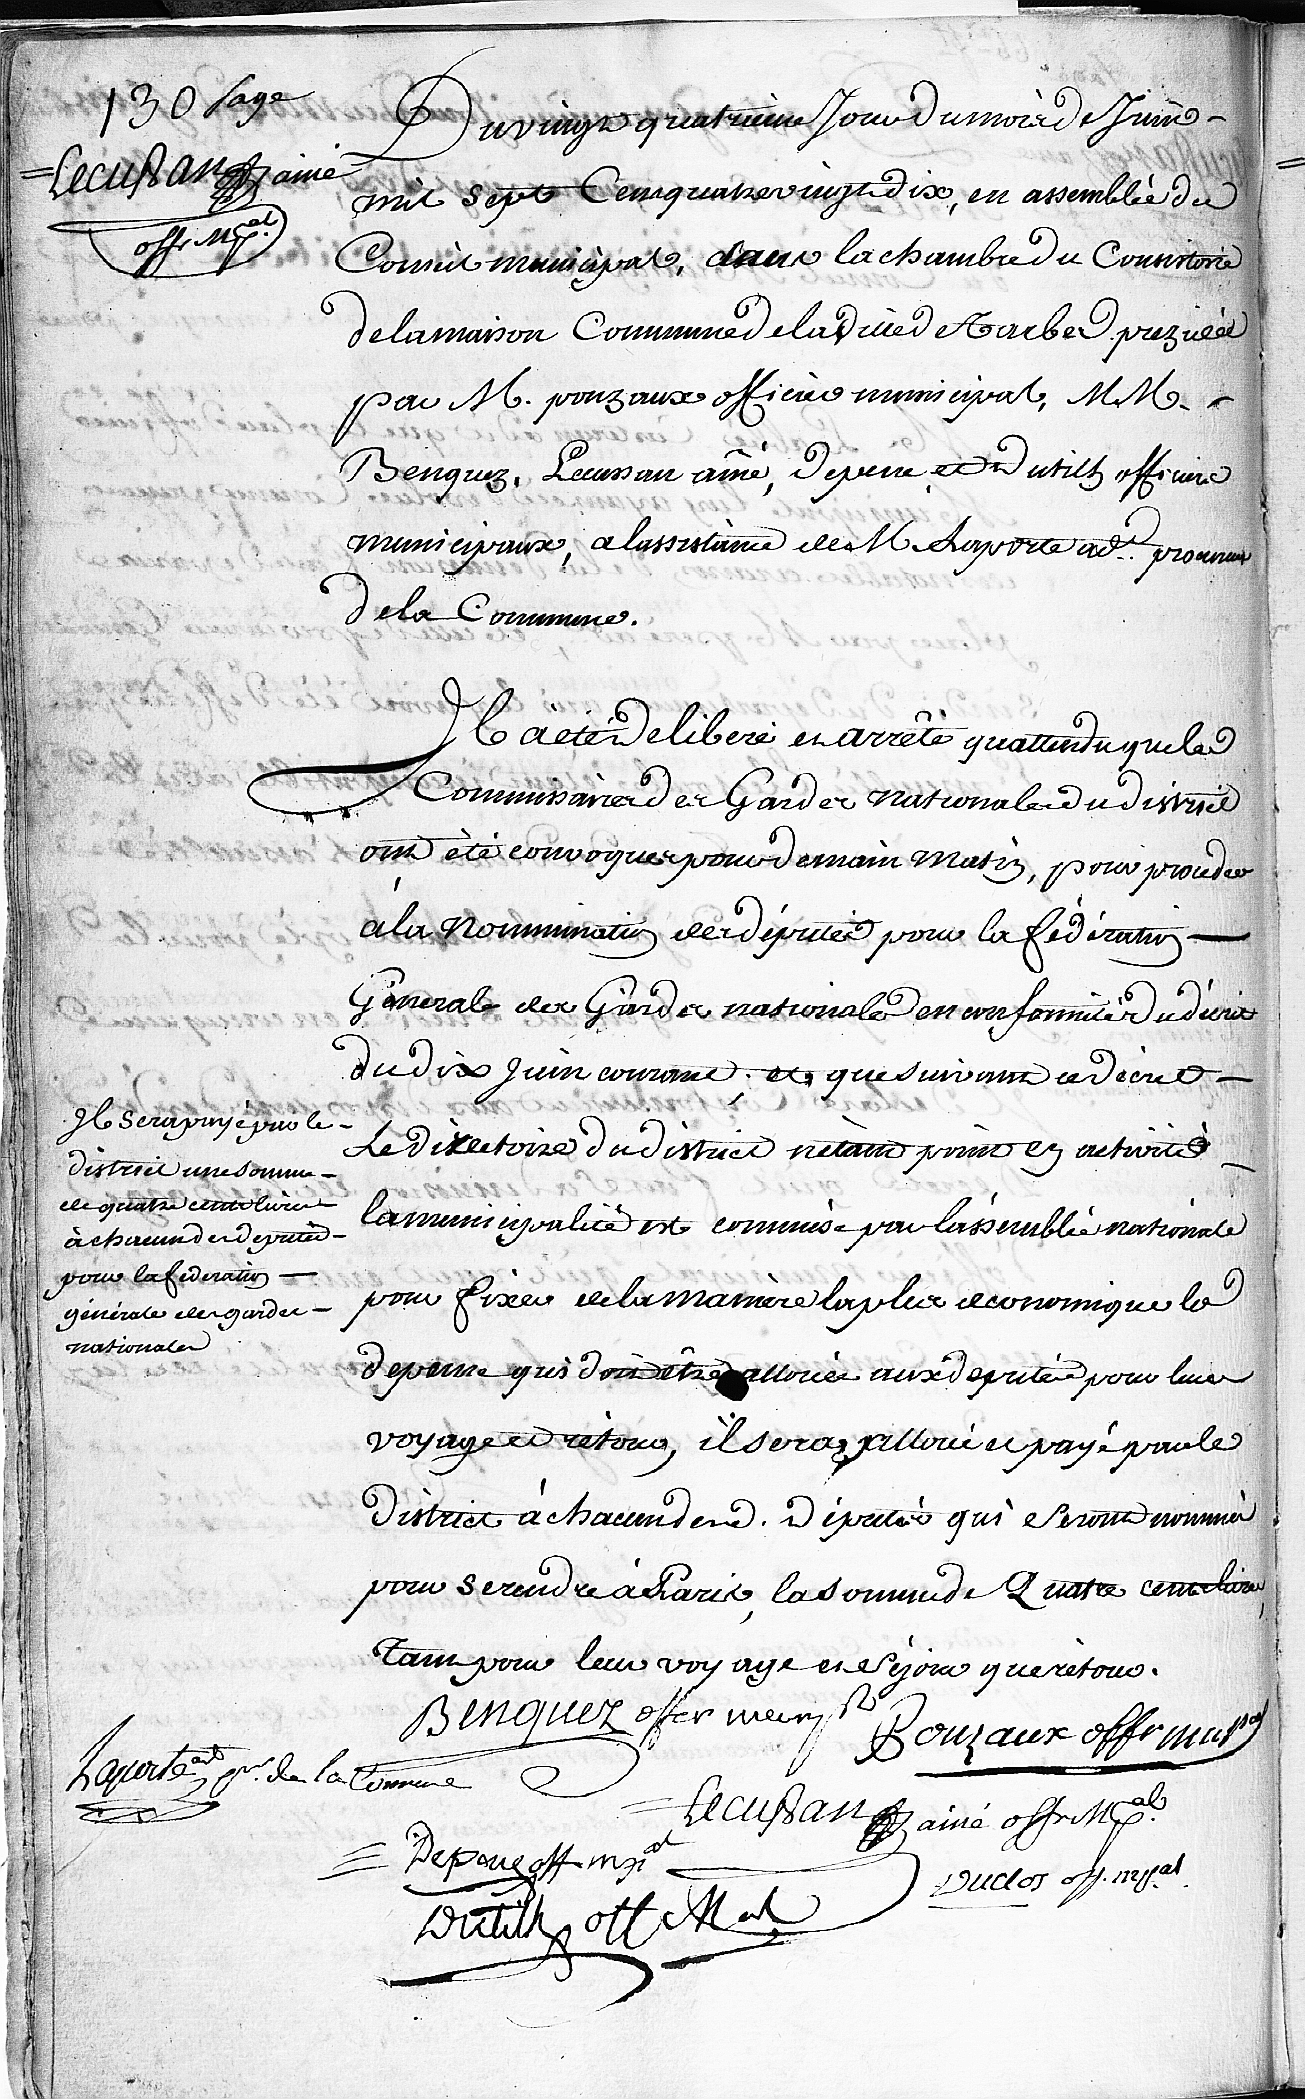 130 page
Lecussan ainé
offr. Mpal.
Du vingt quatrieme Jour du mois de Juin
mil sept Cens quatre vingt dix, en assemblée du
Conseil municipal, dans la chambre du Consistoire
de la maison Commune de la ville de Tarbes prezidée
par M. pouzaux officier municipal, M.M.
Benquez, Lecussan ainé, depene et dutilh officiers
municipaux, a lassistance de M. Laporte adt. procureur
de la Commune.
Il a été deliberé et arrêté quattendu que les
Commissaires des Gardes nationales du district
ont été convoqués pour demain matin, pour proceder
à la Nommination des députés pour la fédération
Génerale des Gardes nationales en conformité du décret
du dix Juin courant; et que suivant ce décret
Le directoire du district nétant point en activité
la municipalité est commise par lassemblée nationale
pour fixer de la manière la plus œconomique la
depense qui doit être allouée aux députés pour leur
voyage et rétour, il sera alloué et payé par le
district à chacun desd. députés qui seront nommés
pour se rendre à Paris, la somme de Quatre cent livres,
Tant pour leur voyage et séjour que rétour.
Il sera payé par le
district une somme
de quatre cents livres
à chacun des députés
pour la fédération
générale des gardes
nationales
Benquez offer
Pouzaux offr mupal
Laporte adt pr. de la Commune
Lecussan ainé offr. Mpal.
Depene off. mpal
Duclos off. mpal.
Dutilh off Mal